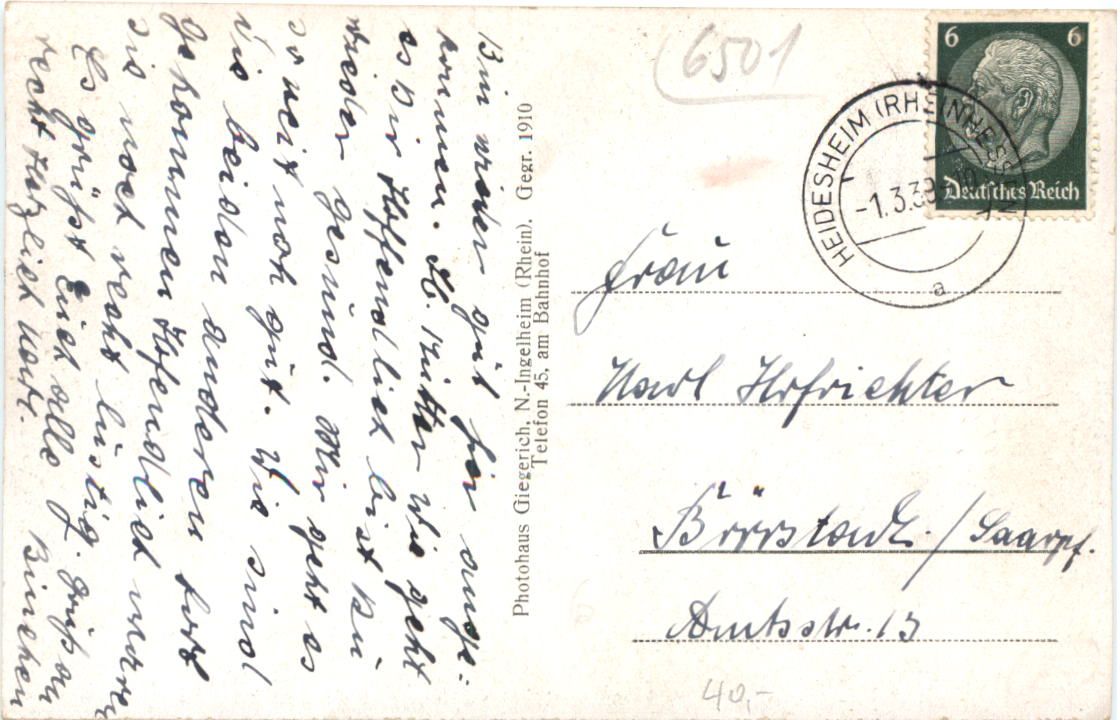 Bin wieder gut hier ange-
kommen. Lb. Mutter wie geht
es Dir Hoffendlich bist Du
wieder gesund. Mir geht es
soweit noch gut. Wie sind
die beiden anderen
gekommen Hofendlich waren
sie noch recht lustig.
Es grüßt Euch alle
recht Herzlich
Photohaus Giegerich, N.-Ingelheim (Rhein). Gegr. 1910
Telefon 45, am Bahnhof
6501
6 6
Deutsches Reich
HEIDESHEIM (RHEINHESSEN)
-1.3.39
a
Frau
Karl Hofrichter
/ Saarpf.
Amtsstr. 13
40,-